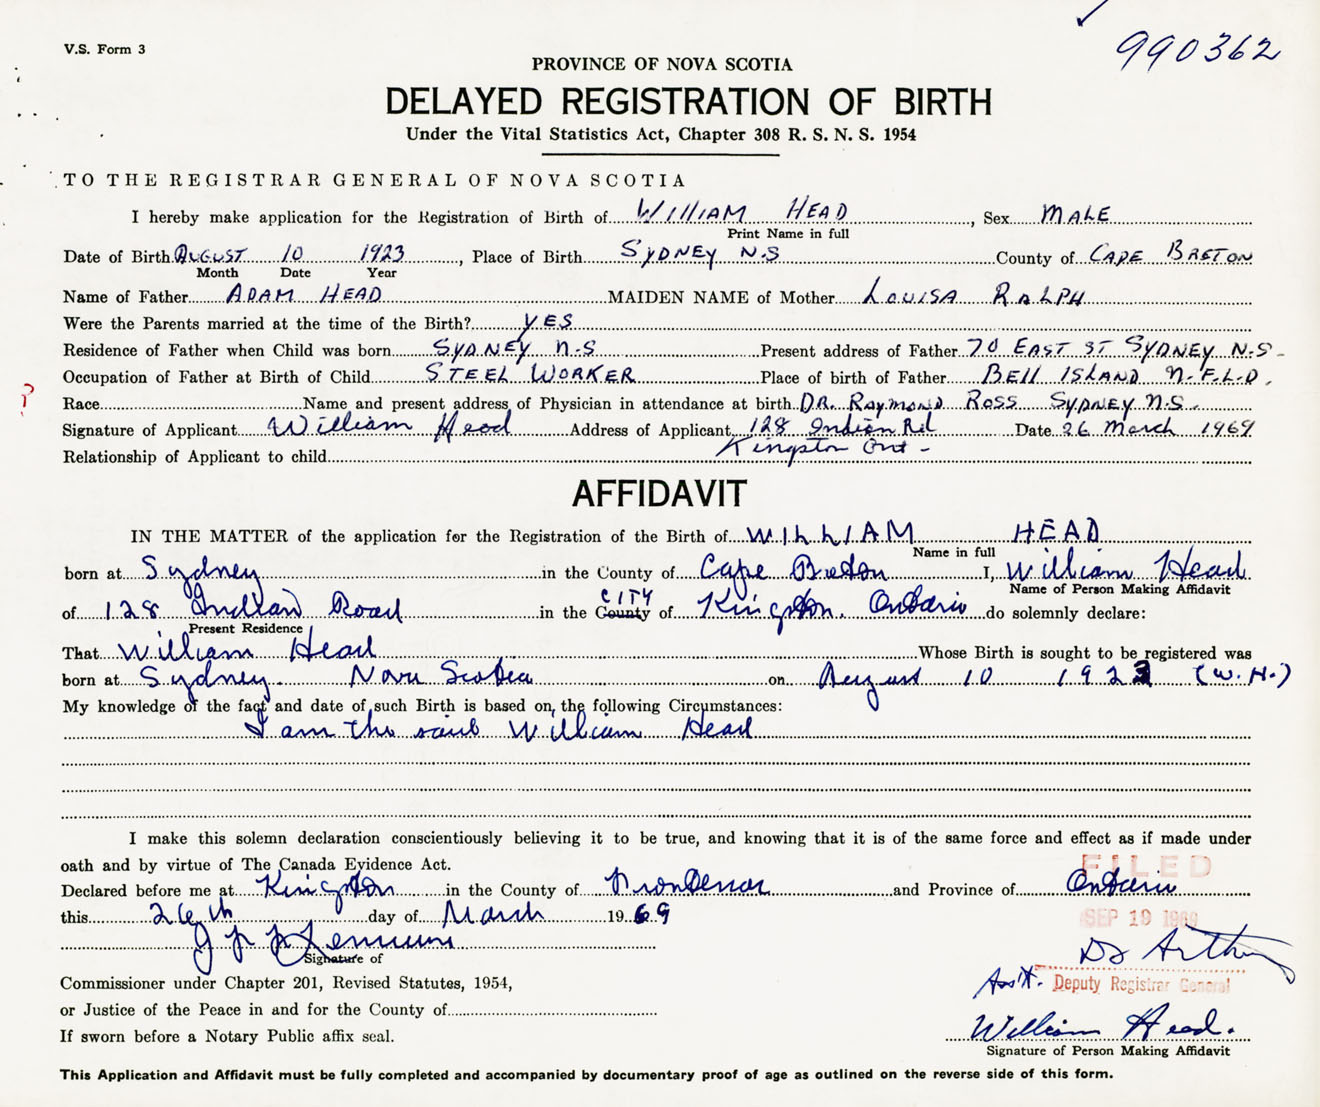 V.S. Form 3
990362
PROVINCE OF NOVA SCOTIA
DELAYED REGISTRATION OF BIRTH
Under the Vital Statistics Act, Chapter 308 R. S. N. S. 1954
TO THE REGISTRAR GENERAL OF NOVA SCOTIA
I hereby make application for the Registration of Birth of WILLIAM HEAD, Sex MALE
Print Name in full
Date of Birth AUGUST 10 1923, Place of Birth SYDNEY N.S County of CAPE BRETON
Month Date Year
Name of Father ADAM HEAD MAIDEN NAME of Mother LOUISA RALPH
Were the Parents married at the time of the Birth? YES
Residence of Father when Child was born SYDNEY N.S Present address of Father 70 EAST ST SYDNEY N.S-
Occupation of Father at Birth of Child STEEL WORKER Place of birth of Father BELL ISLAND N.F.L.D.
? Race Name and present address of Physician in attendance at birth DR. RAYMOND ROSS SYDNEY N.S.
Signature of Applicant William Head Address of Applicant 128 Indian Rd Date 26 March 1969
Kingston Ont -
Relationship of Applicant to child
AFFIDAVIT
IN THE MATTER of the application for the Registration of the Birth of WILLIAM HEAD
Name in full
born at Sydney in the County of Cape Breton I, William Head
Name of Person Making Affidavit
CITY
of 128 Indian Road in the County of Kingston. Ontario do solemnly declare:
Present Residence
That William Head Whose Birth is sought to be registered was
born at Sydney. Nova Scotia on August 10 1923 (W.H.)
My knowledge of the fact and date of such Birth is based on the following Circumstances:
I am the said William Head
I make this solemn declaration conscientiously believing it to be true, and knowing that it is of the same force and effect as if made under
oath and by virtue of The Canada Evidence Act.
FILED
Declared before me at Kingston in the County of Frontenac and Province of Ontario
this 26th day of March 1969
SEP 19 1969
Signature of
Asst. Deputy Registrar General
Commissioner under Chapter 201, Revised Statutes, 1954,
or Justice of the Peace in and for the County of
William Head.
If sworn before a Notary Public affix seal.
Signature of Person Making Affidavit
This Application and Affidavit must be fully completed and accompanied by documentary proof of age as outlined on the reverse side of this form.